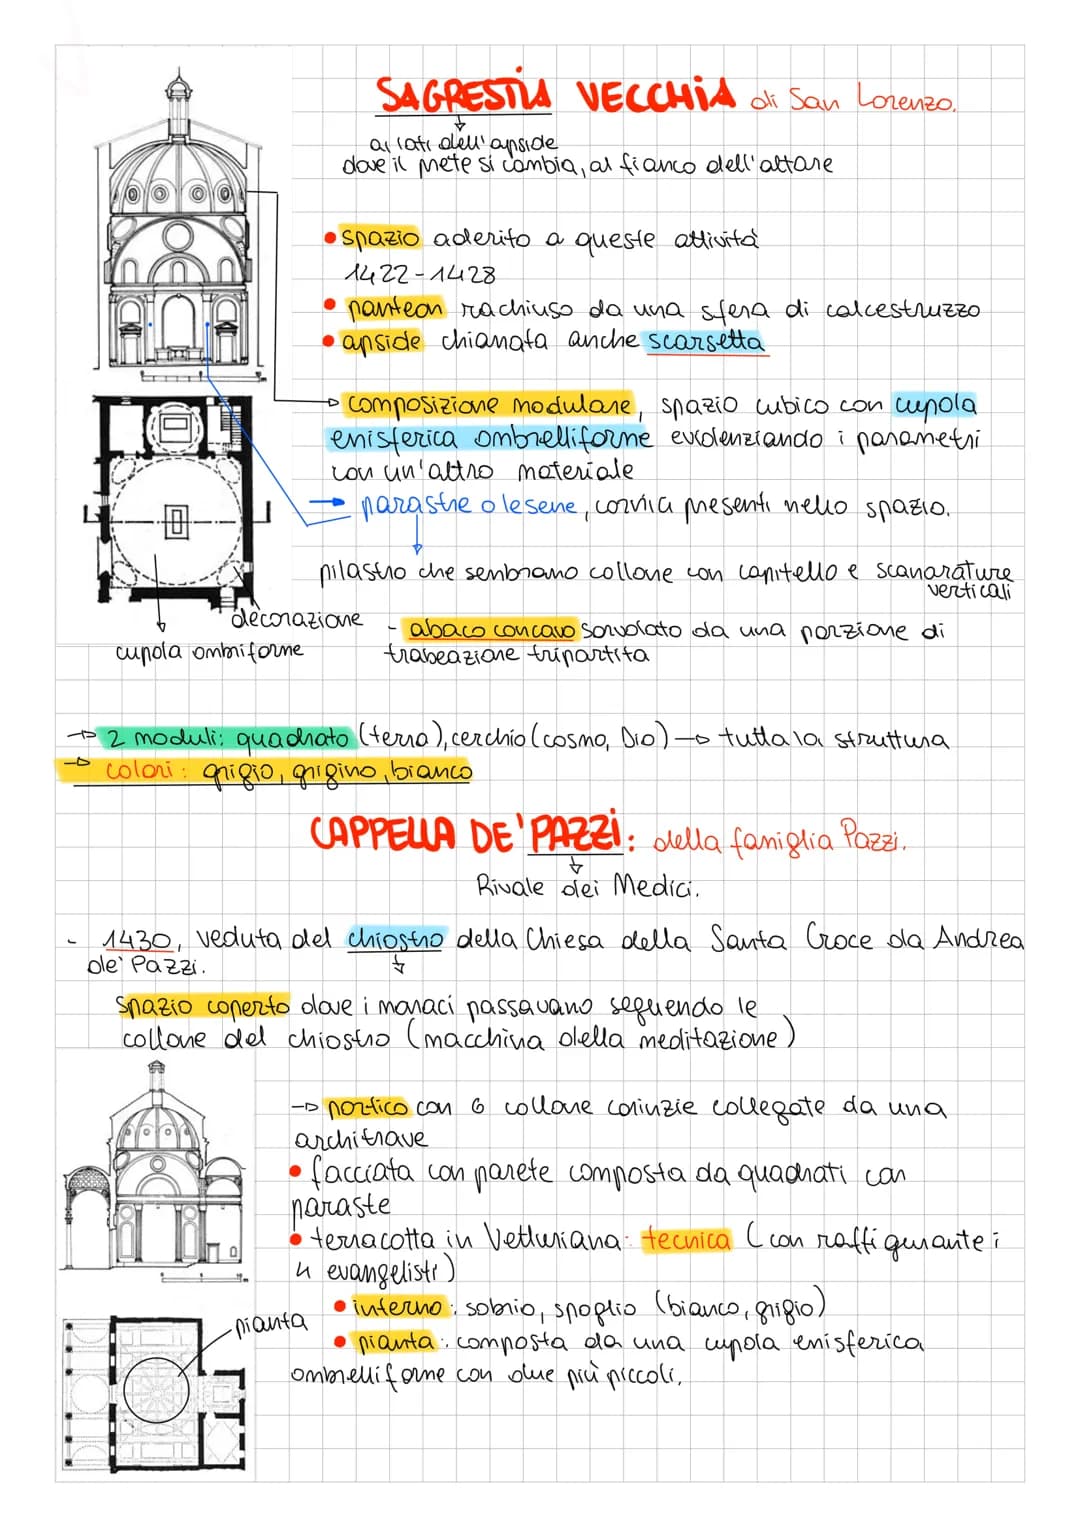 SAGRESTIA VECCHIA di San Lorenzo.
ai lati dell'apside
dove il prete si cambia, al fianco dell'altare
• spazio aderito a queste attività
1422-1428
• panteon rachiuso da una sfera di calcestruzzo
• apside chianata anche scarsetta
composizione modulare, spazio cubico con cupola
enisferica ombrelliforme evidenziando i parametri
con un'altro materiale
→ parastre o lesene, cornici presenti nello spazio.
pilastro che sembrano collone con capitello e scanarature
verticali
decorazione
- abaco concavo sorvolato da una porzione di
cupola ombriforme
trabeazione tripartita
→ 2 moduli: quadrato (terra), cerchio (cosmo, Dio) → tutta la struttura
→ colori: grigio, grigino, bianco
CAPPELLA DE' PAZZI: della famiglia Pazzi.
Rivale dei Medici.
- 1430, veduta del chiostro della Chiesa della Santa Croce da Andrea
de' Pazzi.
Spazio coperto dove i monaci passavano seguendo le
collone del chiostro (macchina della meditazione)
→ portico con 6 collone corinzie collegate da una
architrave
• facciata con parete composta da quadrati con
paraste
• terracotta in Vetluriana: tecnica (con raffigurante i
4 evangelisti)
• interno: sobrio, spoglio (bianco, grigio)
pianta
• pianta: composta da una cupola enisferica
ombrelliforme con due più piccoli.